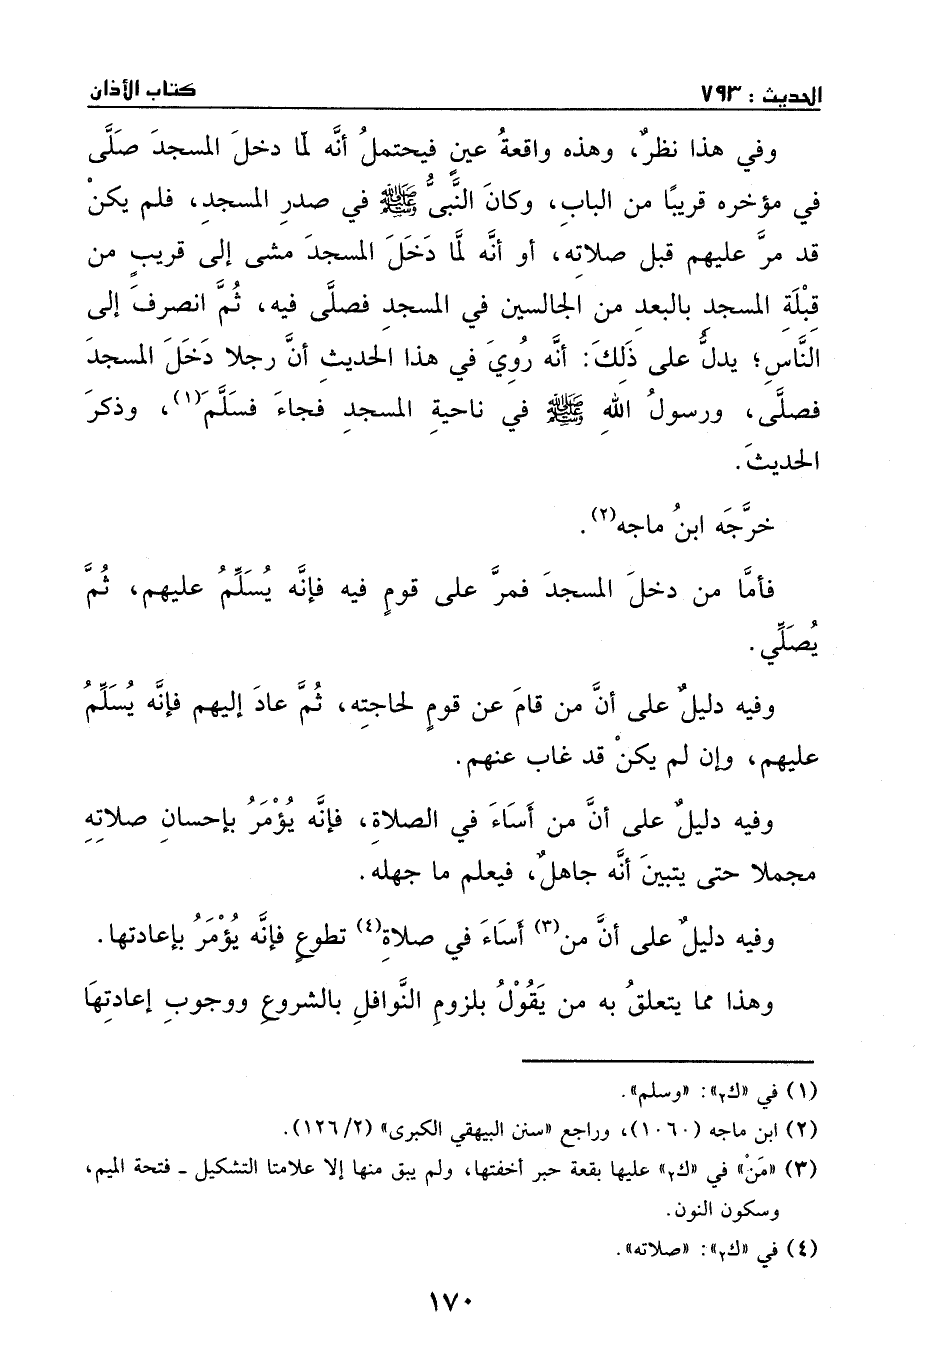 الحديث : ٧٩٣
كتاب الأذان
وفي هذا نظرٌ، وهذه واقعةُ عينٍ فيحتملُ أنَّه لمَّا دخلَ المسجدَ صَلَّى
في مؤخره قريبًا من البابِ، وكانَ النَّبيُّ ﷺ في صدرِ المسجدِ، فلم يكنْ
قد مرَّ عليهم قبل صلاتِه، أو أنَّه لمَّا دَخَلَ المسجدَ مشى إلى قريبٍ من
قِبْلَةِ المسجدِ بالبعدِ من الجالسين في المسجدِ فصلَّى فيه، ثُمَّ انصرفَ إلى
النَّاسِ؛ يدلُّ على ذَلِكَ: أنَّه رُوِيَ في هذا الحديثِ أنَّ رجلا دَخَلَ المسجدَ
فصلَّى، ورسولُ اللهِ ﷺ في ناحيةِ المسجدِ فجاءَ فسَلَّمَ(١)، وذكرَ
الحديثَ.
خرَّجَه ابنُ ماجه(٢).
فأمَّا من دخلَ المسجدَ فمرَّ على قومٍ فيه فإنَّه يُسَلِّمُ عليهم، ثُمَّ
يُصَلِّي.
وفيه دليلٌ على أنَّ من قامَ عن قومٍ لحاجتِه، ثُمَّ عادَ إليهم فإنَّه يُسَلِّمُ
عليهم، وإن لم يكنْ قد غاب عنهم.
وفيه دليلٌ على أنَّ من أَسَاءَ في الصلاةِ، فإنَّه يُؤْمَرُ بإحسانِ صلاتِهِ
مجملا حتى يتبينَ أنَّه جاهلٌ، فيعلم ما جهله.
وفيه دليلٌ على أنَّ من(٣) أَسَاءَ في صلاةِ(٤) تطوعٍ فإنَّه يُؤْمَرُ بإعادتها.
وهذا مما يتعلقُ به من يَقُوْلُ بلزومِ النَّوافلِ بالشروعِ ووجوبِ إعادتِهَا
(١) في «ك٢»: «وسلم».
(٢) ابن ماجه (١٠٦٠)، وراجع «سنن البيهقي الكبرى» (٢/ ١٢٦).
(٣) «مَنْ» في «ك٢» عليها بقعة حبر أخفتها، ولم يبق منها إلا علامتا التشكيل - فتحة الميم،
وسكون النون.
(٤) في «ك٢»: «صلاته».
١٧٠